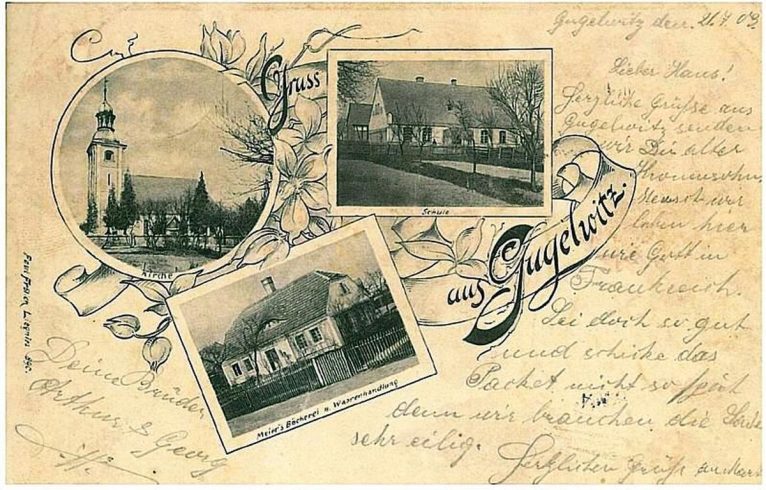 Gugelwitz den 21.7.03.
Gruss
aus Gugelwitz.
Kirche
Schule
Meier's Bäckerei u. Waarenhandlung
Lieber Hans!
Herzliche Grüße aus
Gugelwitz senden
wir Dir alter
Mensch wir
leben hier
wie Gott in
Frankreich.
Sei doch so gut
und schicke das
Packet nicht so spät
denn wir brauchen die
sehr eilig.
Herzlichen Gruß
Deine Brüder
Arthur & Georg